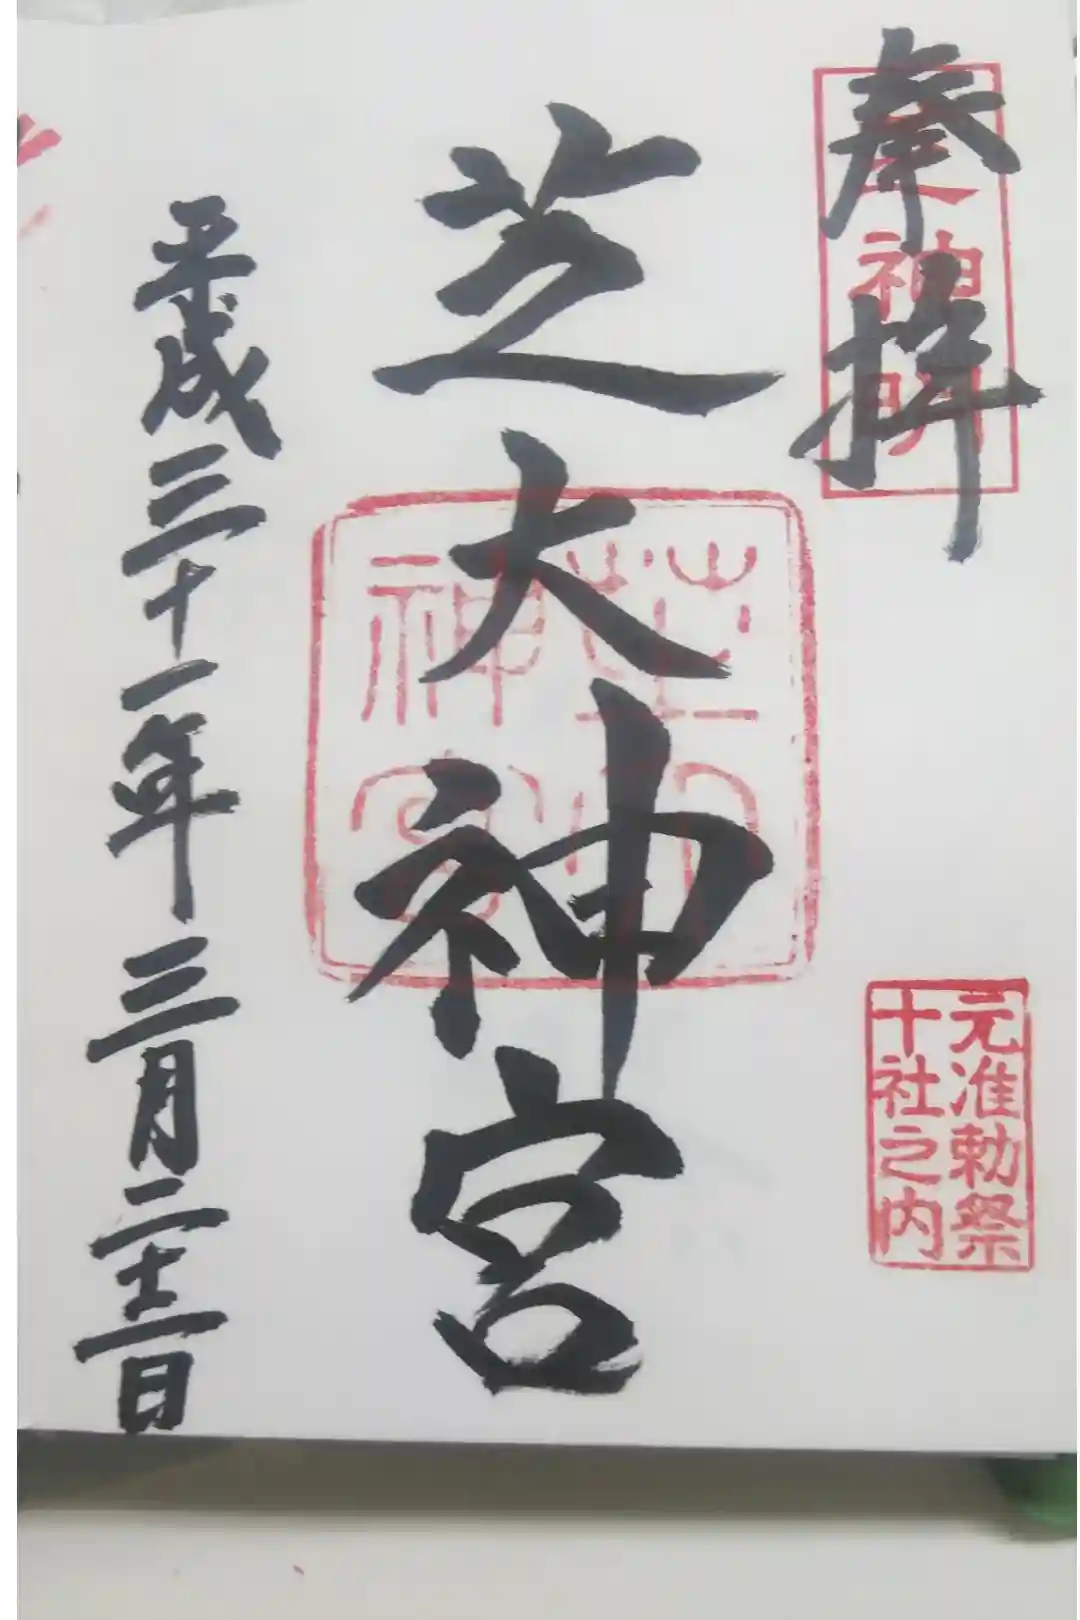 奉拝
芝神明
元准勅祭
十社之内
芝大神宮
芝大
神宮
平成三十一年三月二十二日